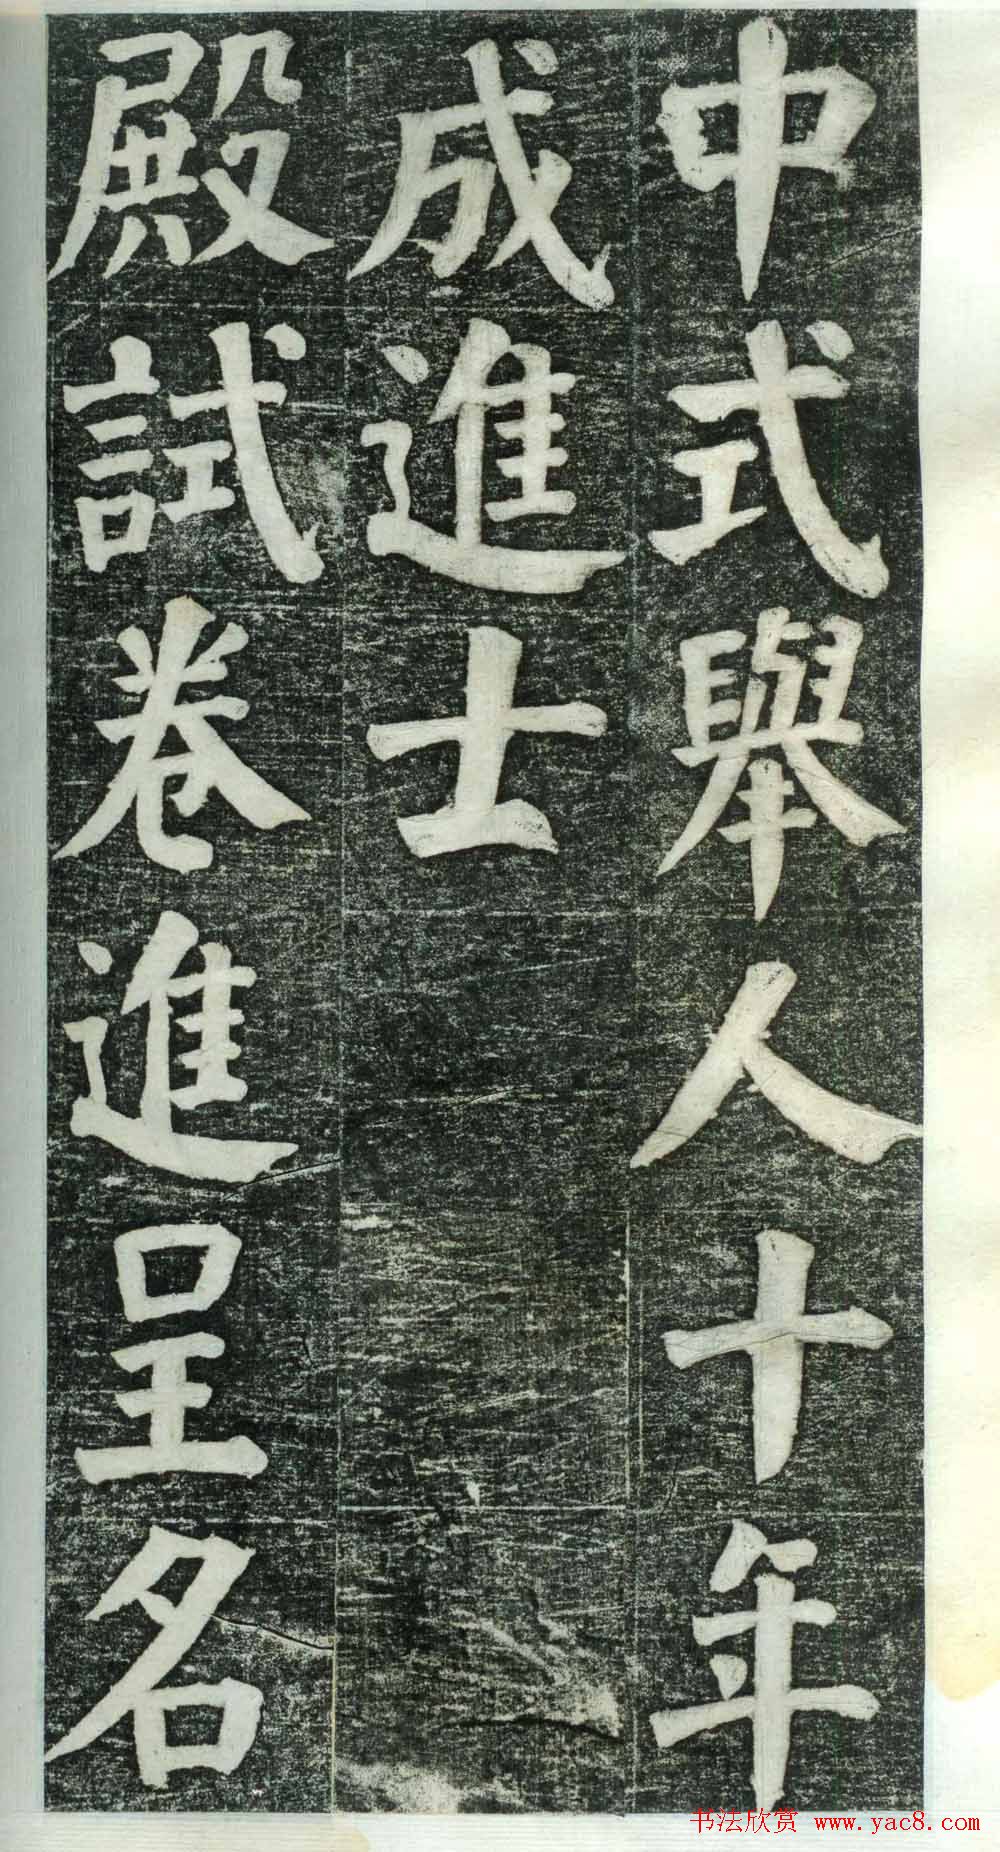 中式舉人十年
成進士
殿試卷進呈名
书法欣赏 www.yac8.com